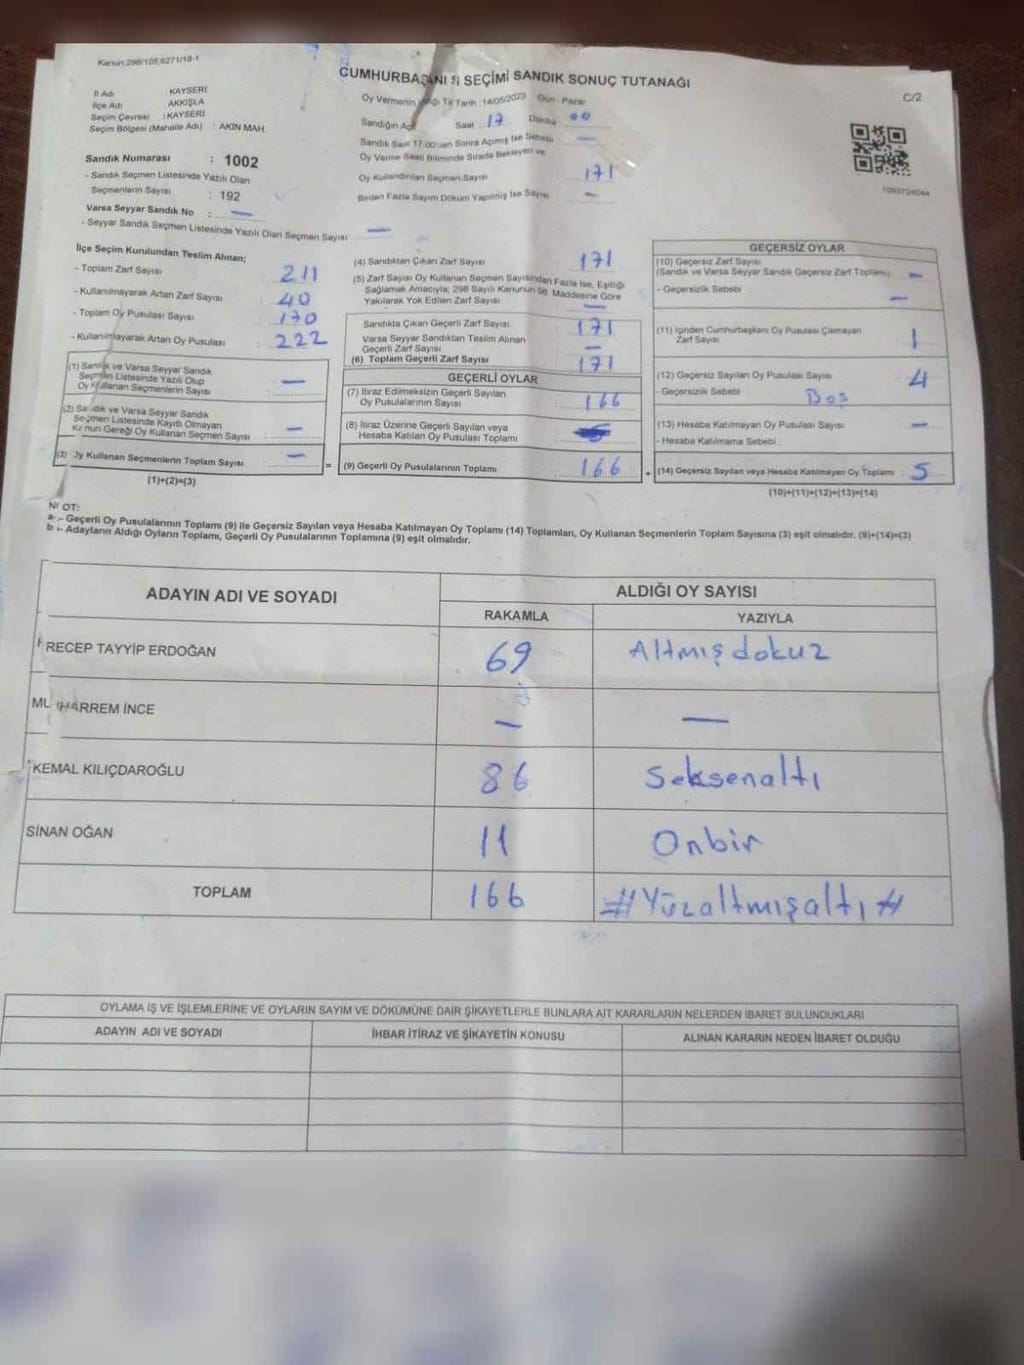 Kanun 298/105,6271/18-1
CUMHURBAŞKANI SEÇİMİ SANDIK SONUÇ TUTANAĞI
C/2
İl Adı KAYSERİ
İlçe Adı AKKIŞLA
Seçim Çevresi : KAYSERİ
Seçim Bölgesi (Mahalle Adı) : AKIN MAH.
Oy Vermenin Tarih 14/05/2023 Gün: Pazar
Sandığın Saat 17 Dakika 00
Sandık Saat 17.00'den Sonra Açılmış İse Sebebi —
Oy Verme Saati Bitiminde Sırada Bekleyen ve
Oy Kullandırılan Seçmen Sayısı 171
Birden Fazla Sayım Döküm Yapılmış İse Sayısı —
1093724044
Sandık Numarası : 1002
- Sandık Seçmen Listesinde Yazılı Olan
Seçmenlerin Sayısı : 192
Varsa Seyyar Sandık No : —
- Seyyar Sandık Seçmen Listesinde Yazılı Olan Seçmen Sayısı —
İlçe Seçim Kurulundan Teslim Alınan;
- Toplam Zarf Sayısı 211
- Kullanılmayarak Artan Zarf Sayısı 40
- Toplam Oy Pusulası Sayısı
- Kullanılmayarak Artan Oy Pusulası 222
(1) Sandık ve Varsa Seyyar Sandık
Seçmen Listesinde Yazılı Olup
Oy Kullanan Seçmenlerin Sayısı —
(2) Sandık ve Varsa Seyyar Sandık
Seçmen Listesinde Kayıtlı Olmayan
Kanun Gereği Oy Kullanan Seçmen Sayısı —
(3) Oy Kullanan Seçmenlerin Toplam Sayısı —
(1)+(2)=(3)
(4) Sandıktan Çıkan Zarf Sayısı 171
(5) Zarf Sayısı Oy Kullanan Seçmen Sayısından Fazla İse, Eşitliği
Sağlamak Amacıyla; 298 Sayılı Kanunun 98. Maddesine Göre
Yakılarak Yok Edilen Zarf Sayısı —
Sandıkta Çıkan Geçerli Zarf Sayısı 171
Varsa Seyyar Sandıktan Teslim Alınan
Geçerli Zarf Sayısı —
(6) Toplam Geçerli Zarf Sayısı 171
GEÇERLİ OYLAR
(7) İtiraz Edilmeksizin Geçerli Sayılan
Oy Pusulalarının Sayısı 166
(8) İtiraz Üzerine Geçerli Sayılan veya
Hesaba Katılan Oy Pusulası Toplamı
= (9) Geçerli Oy Pusulalarının Toplamı 166
GEÇERSİZ OYLAR
(10) Geçersiz Zarf Sayısı
(Sandık ve Varsa Seyyar Sandık Geçersiz Zarf Toplamı) —
- Geçersizlik Sebebi : —
(11) İçinden Cumhurbaşkanı Oy Pusulası Çıkmayan
Zarf Sayısı 1
(12) Geçersiz Sayılan Oy Pusulası Sayısı 4
- Geçersizlik Sebebi : Boş
(13) Hesaba Katılmayan Oy Pusulası Sayısı —
- Hesaba Katılmama Sebebi :
+ (14) Geçersiz Sayılan veya Hesaba Katılmayan Oy Toplamı : 5
(10)+(11)+(12)+(13)=(14)
NOT:
a - Geçerli Oy Pusulalarının Toplamı (9) ile Geçersiz Sayılan veya Hesaba Katılmayan Oy Toplamı (14) Toplamları, Oy Kullanan Seçmenlerin Toplam Sayısına (3) eşit olmalıdır. (9)+(14)=(3)
b - Adayların Aldığı Oyların Toplamı, Geçerli Oy Pusulalarının Toplamına (9) eşit olmalıdır.
ADAYIN ADI VE SOYADI ALDIĞI OY SAYISI
RAKAMLA YAZIYLA
RECEP TAYYİP ERDOĞAN 69 Altmışdokuz
MUHARREM İNCE — —
KEMAL KILIÇDAROĞLU 86 Seksenaltı
SİNAN OĞAN 11 Onbir
TOPLAM 166 #Yüzaltmışaltı#
OYLAMA İŞ VE İŞLEMLERİNE VE OYLARIN SAYIM VE DÖKÜMÜNE DAİR ŞİKAYETLERLE BUNLARA AİT KARARLARIN NELERDEN İBARET BULUNDUKLARI
ADAYIN ADI VE SOYADI İHBAR İTİRAZ VE ŞİKAYETİN KONUSU ALINAN KARARIN NEDEN İBARET OLDUĞU